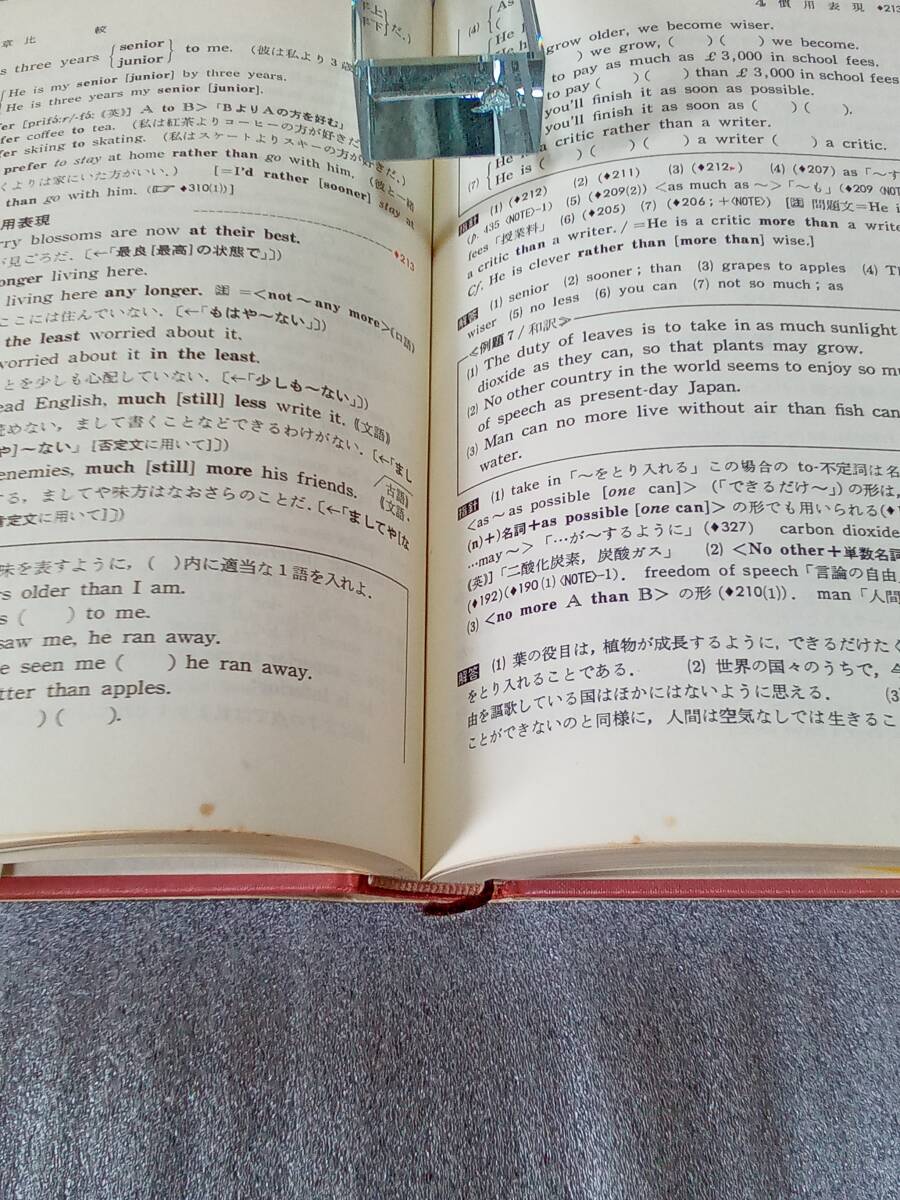 章比 較
s three years { senior junior } to me. (彼は私より3歳{年上 年下}だ.)
He is my senior [junior] by three years.
He is three years my senior [junior].
fer [prifə́ːr/-fə́ː《英》] A to B>「BよりAの方を好む」
fer coffee to tea. (私は紅茶よりコーヒーの方が好きだ
fer skiing to skating. (私はスケートよりスキーの方が好きだ.)
prefer to stay at home rather than go with him. (彼と一緒
くよりは家にいた方がいい.) [=I'd rather [sooner] stay at
than go with him. (☞ ♦310(1))]
用表現 ♦213
rry blossoms are now at their best.
が見ごろだ.〔←「最良[最高]の状態で」〕)
onger living here.
living here any longer. 注 =<not ~ any more>(口語)
ここには住んでいない.〔←「もはや~ない」〕)
the least worried about it.
worried about it in the least.
とを少しも心配していない.〔←「少しも~ない」〕)
ead English, much [still] less write it.《文語》
読めない, まして書くことなどできるわけがない.〔←「まし
や]~ない」[否定文に用いて]〕)
enemies, much [still] more his friends.《文語・古語》
する, ましてや味方はなおさらのことだ.〔←「ましてや[な
否定文に用いて]〕)
味を表すように, ( )内に適当な1語を入れよ.
rs older than I am.
s ( ) to me.
saw me, he ran away.
e seen me ( ) he ran away.
tter than apples.
) ( ).
4 慣用表現 ♦213
(4) { As grow older, we become wiser.
) we grow, ( ) ( ) we become.
He to pay as much as £3,000 in school fees.
He to pay ( ) ( ) than £3,000 in school fees
you'll finish it as soon as possible.
you'll finish it as soon as ( ) ( ).
(7) { He is a critic rather than a writer.
He is ( ) ( ) ( ) a writer ( ) a critic.
指針 (1) (♦212) (2) (♦211) (3) (♦212) (4) (♦207) as「~す
(p. 435〈NOTE〉-1) (5) (♦209(2)) <as much as ~>「~も」(♦209〈NO
fees「授業料」 (6) (♦205) (7) (♦206; +〈NOTE〉) [注 問題文=He i
a critic than a writer. / =He is a critic more than a write
Cf. He is clever rather than [more than] wise.]
解答 (1) senior (2) sooner; than (3) grapes to apples (4) Th
wiser (5) no less (6) you can (7) not so much; as
≪例題7/和訳≫
(1) The duty of leaves is to take in as much sunlight
dioxide as they can, so that plants may grow.
(2) No other country in the world seems to enjoy so mu
of speech as present-day Japan.
(3) Man can no more live without air than fish can
water.
指針 (1) take in「~をとり入れる」この場合の to-不定詞は名
<as ~ as possible [one can]>(「できるだけ~」)の形は,
(n)+)名詞+as possible [one can]> の形でも用いられる(♦
…may ~>「…が~するように」(♦327) carbon dioxide
《英》]「二酸化炭素, 炭酸ガス」 (2) <No other+単数名詞
(♦192)(♦190(1)〈NOTE〉-1). freedom of speech「言論の自由
(3) <no more A than B> の形 (♦210(1)). man「人間
解答 (1) 葉の役目は, 植物が成長するように, できるだけたく
をとり入れることである. (2) 世界の国々のうちで, 今
由を謳歌している国はほかにはないように思える. (3)
ことができないのと同様に, 人間は空気なしでは生きるこ